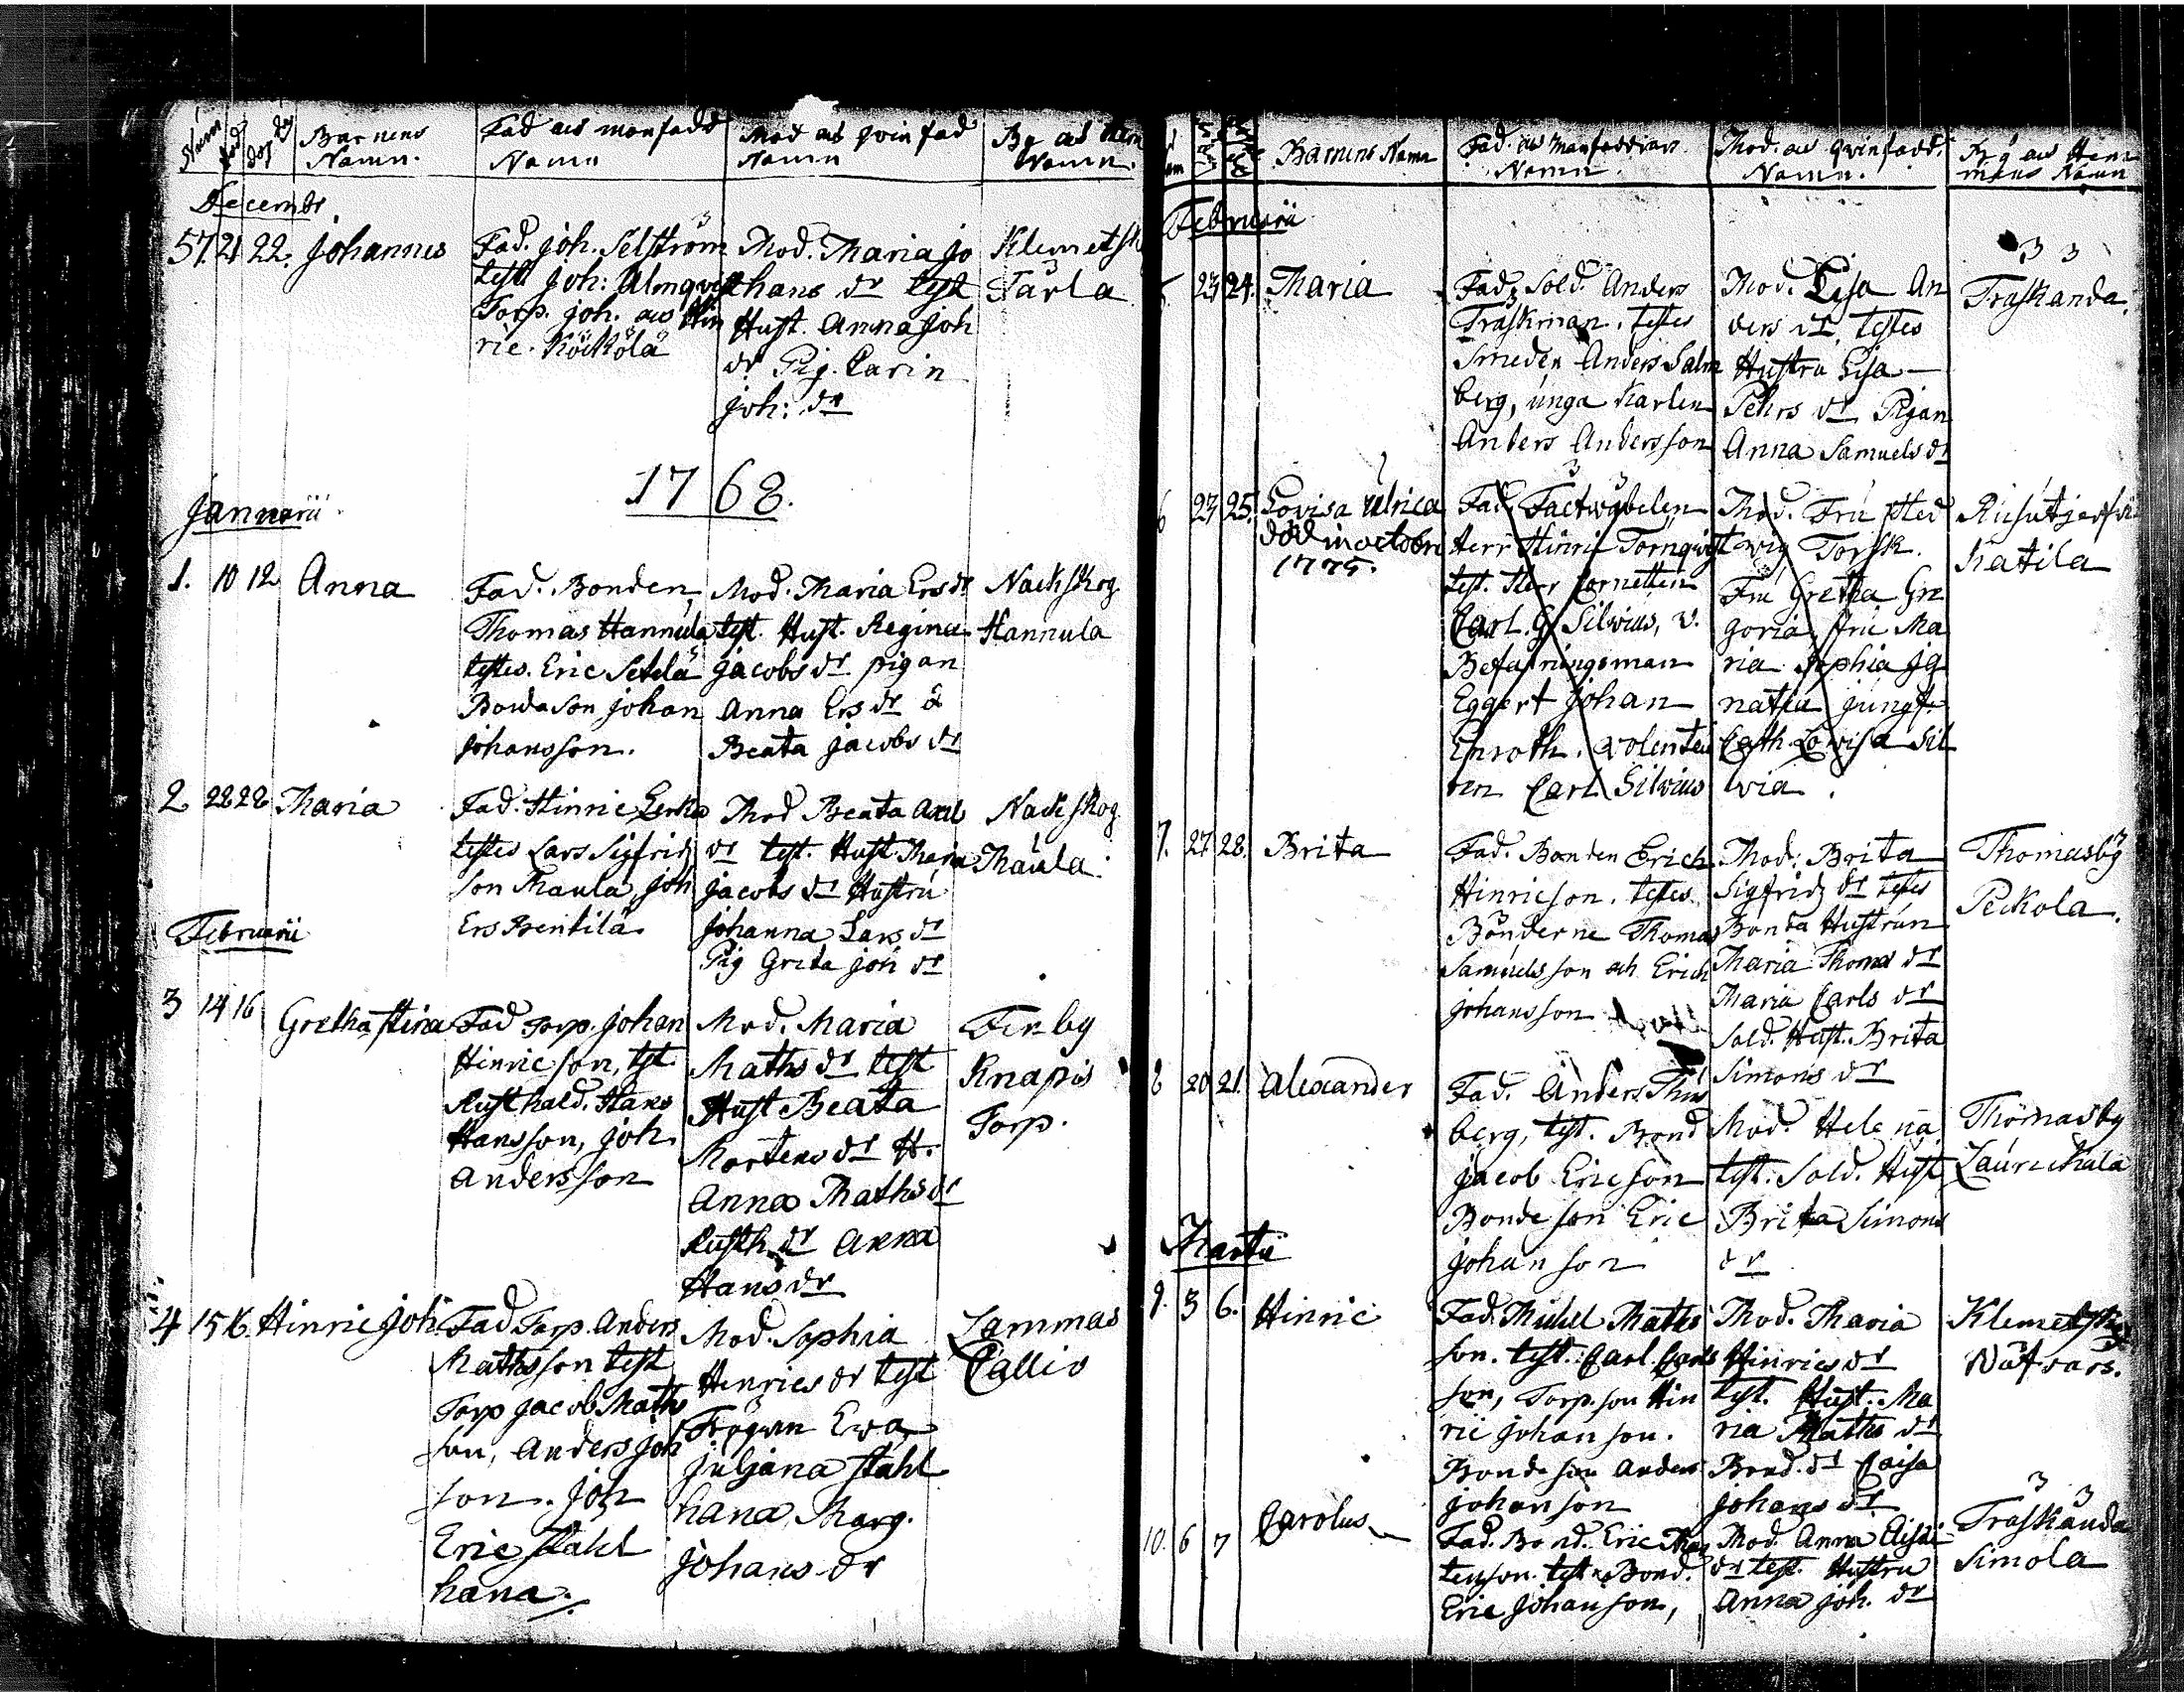 Barnens
Namn.
Fad. as manfadd
Namn
Mod as qvinfad
Namn
By as Hem
Namn.
Decembr
57. 21 22. Johannes
Fad. Joh. Selström
test. Joh: Almqvist
Torp. Joh. as Hin
ric. Köckölä
Mod. Maria Jo
hans dr test
Hust. Anna Joh
dr Pig. Carin
Joh: dr
Klemetsk
Tarla
1768.
Januarii
1. 10 12 Anna
Fad. Bonden
Thomas Hannula
testes. Eric Setelä
Bondason Johan
Johansson.
Mod. Maria Ersdr
test. Hust. Regina
Jacobs dr pigan
Anna Ers dr &
Beata Jacobs dr
Nackskog
Hannula
2 22 22 Maria
Fad. Hinric
testes Lars Sigfrids
son Maula, Joh
Ers Benkilä
Mod Beata Axel
dr test. Hust Maria
Jacobs dr Hustru
Johanna Lars dr
Pig Greta Joh dr
Nackskog
Maula.
Februarii
3 14 16 Gretha Stina
Fad Torp. Johan
Hinricson, tst
Rusthald. Hans
Hansson, Joh
Andersson
Mod. Maria
Maths dr test
Hust Beata
Mortens dr H.
Anna Mathsdr
Rusth dr Anna
Hansdr
Finby
Knapis
Torp.
4 15 16. Hinric Joh
Fad Torp. Anders
Mathsson test
Torp Jacob Maths
son, Anders Joh
son. Joh
Eric Stahl
hana.
Mod. Sophia
Henrics dr test
Frögan Eva
Juljana Stahl
hana Marg.
Johans dr
Lammas
Callio
Barnens Namn
Fad. as Manfaddrars
Namn.
Mod. as qvinfadd.
Namn.
By as Hem
mans Namn
Februarii
5. 23 24. Maria
Fad. Sold. Anders
Träskman. testes
Smeden Anders Salm
berg, unga Karlen
Anders Andersson
Mod. Lisa An
ders dr, testes
Hustru Lisa
Pehrs dr Pigan
Anna Samuels dr
Träskanda.
6 23 25. Lovisa Ulrica
död in octobri
1775.
Fad.
Herr Hinric Törnqvist
test. Herr Cornetten
Carl. G. Silvius, v.
Befalningsman
Eggert Johan
Enroth. Volentei
ren Carl Silvius
Mod. Fru Hed
wig Torsk.
Fru Gretha Gre
goria, Fru Ma
ria Sophia Ig
natia Jungf.
Cath. Lovisa Sil
via.
Katila
7. 27 28. Brita
Fad. Bonden Erich
Hinricson. testes
Bönderne Thomas
Samuelsson och Erich
Johansson
Mod. Brita
Sigfrids dr testes
Bonda Hustrun
Maria Thoms dr
Maria Carls dr
Sold. Hust. Brita
Simons dr
Thomasby
Peckola.
8 20 21. Alexander
Fad. Anders
berg, tst. Bond
Jacob Ericson
Bondeson Eric
Johanson
Mod. Helena
test. Sold. Hust
Brita Simons
dr
Thomasby
Martii
9. 3 6. Hinric
Fad. Michel Maths
son. test. Carl Carls
son, Torp. son Hin
ric Johanson.
Bondeson Anders
Johanson
Mod. Maria
Hinrics dr
test. Hust. Ma
ria Maths dr
Bond. dr Caisa
Johans dr
Klemetskog
Näfvars.
10. 6 7 Carolus
Fad. Bond. Eric
tenson. test. Bond.
Eric Johanson,
Mod. Anna
dr test. Hustru
Anna Joh. dr
Träskanda
Simola